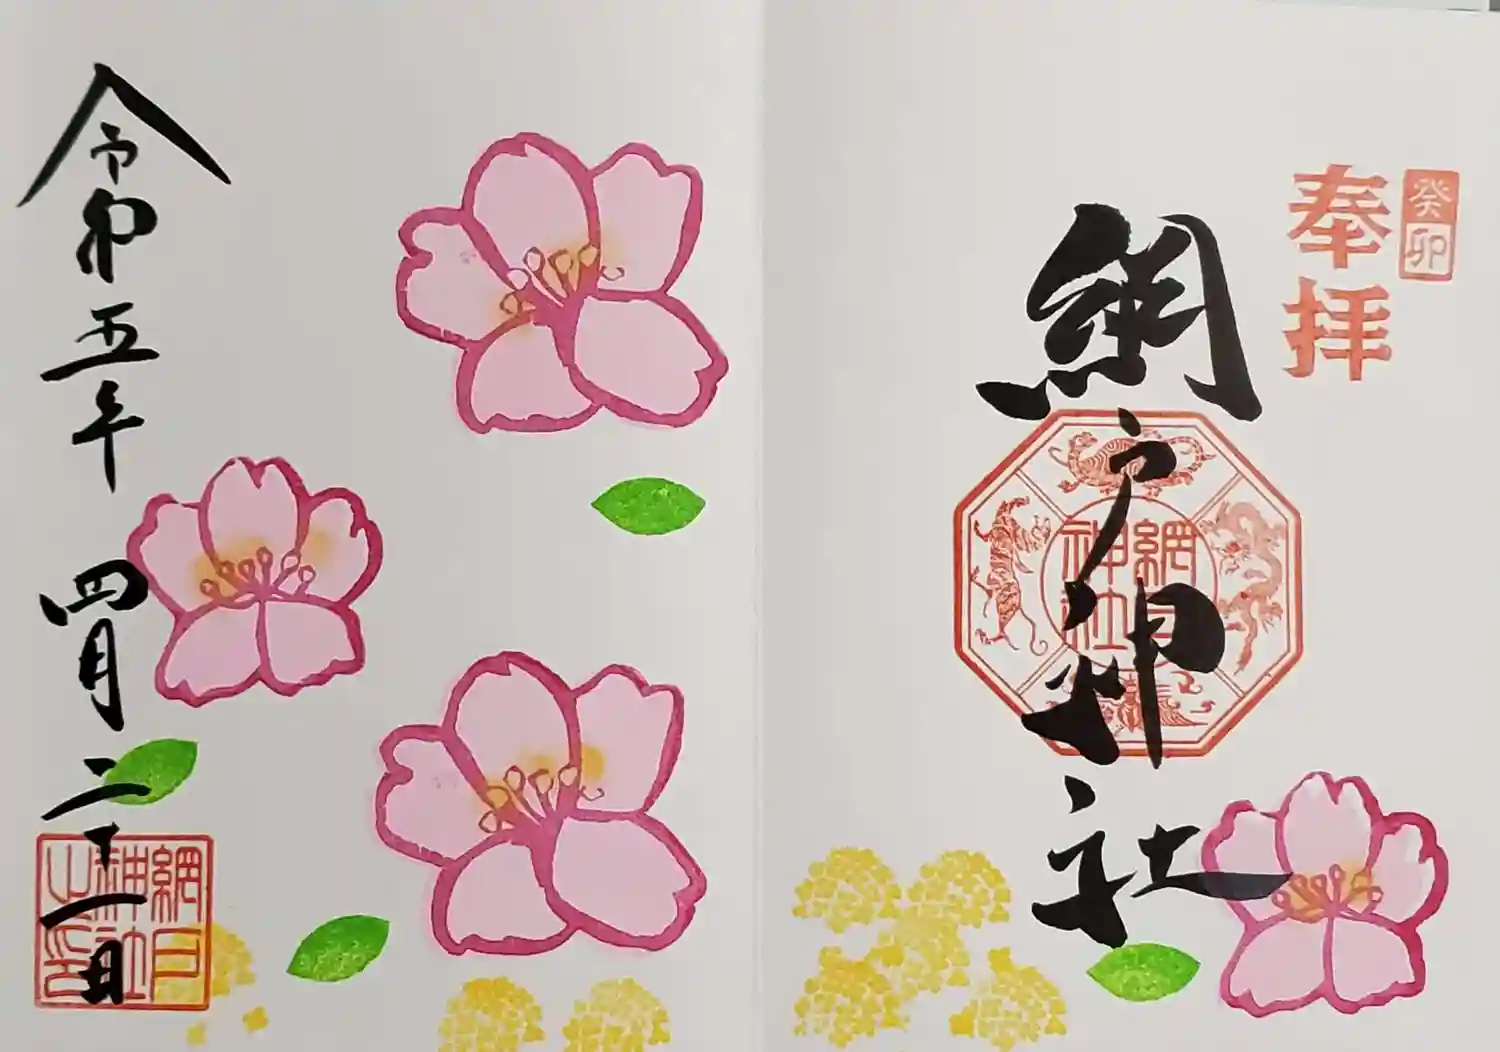 癸卯
奉拝
網戸神社
網戸神社
令和五年 四月二十一日
網戸神社之印